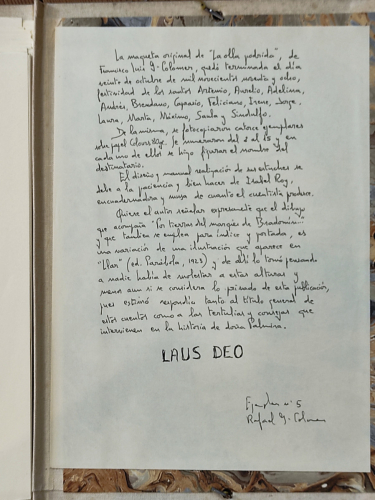 La maqueta original de "La olla podrida", de
Francisco Luis G-Colomer, quedó terminada el día
veinte de octubre de mil novecientos noventa y ocho,
festividad de los santos Artemio, Aurelio, Adelina,
Andrés, Brendano, Caprasio, Feliciano, Irene, Jorge,
Laura, Marta, Máximo, Saula y Sindulfo.
De la misma, se fotocopiaron catorce ejemplares
sobre papel se numeraron del 2 al 15 y en
cada uno de ellos se hizo figurar el nombre del
destinatario.
El diseño y manual realización de sus estuches se
debe a la paciencia y bien hacer de Isabel Roy,
encuadernadora y musa de cuanto el cuentista produce.
Quiere el autor señalar expresamente que el dibujo
que acompaña "Por tierras del marqués de Bradomín"
y que también se emplea para índice y portada, es
una variación de una ilustración que aparece en
(ed. Parábola, 1923) y de allí lo tomó pensando
a nadie había de molestar a estas alturas y
menos aun si se considera lo privado de esta publicación,
pues estimó respondía tanto al título general de
estos cuentos como a las tertulias y consejas que
intervienen en la historia de doña Palmira.
LAUS DEO
Ejemplar nº 5
Rafael G-Colomer